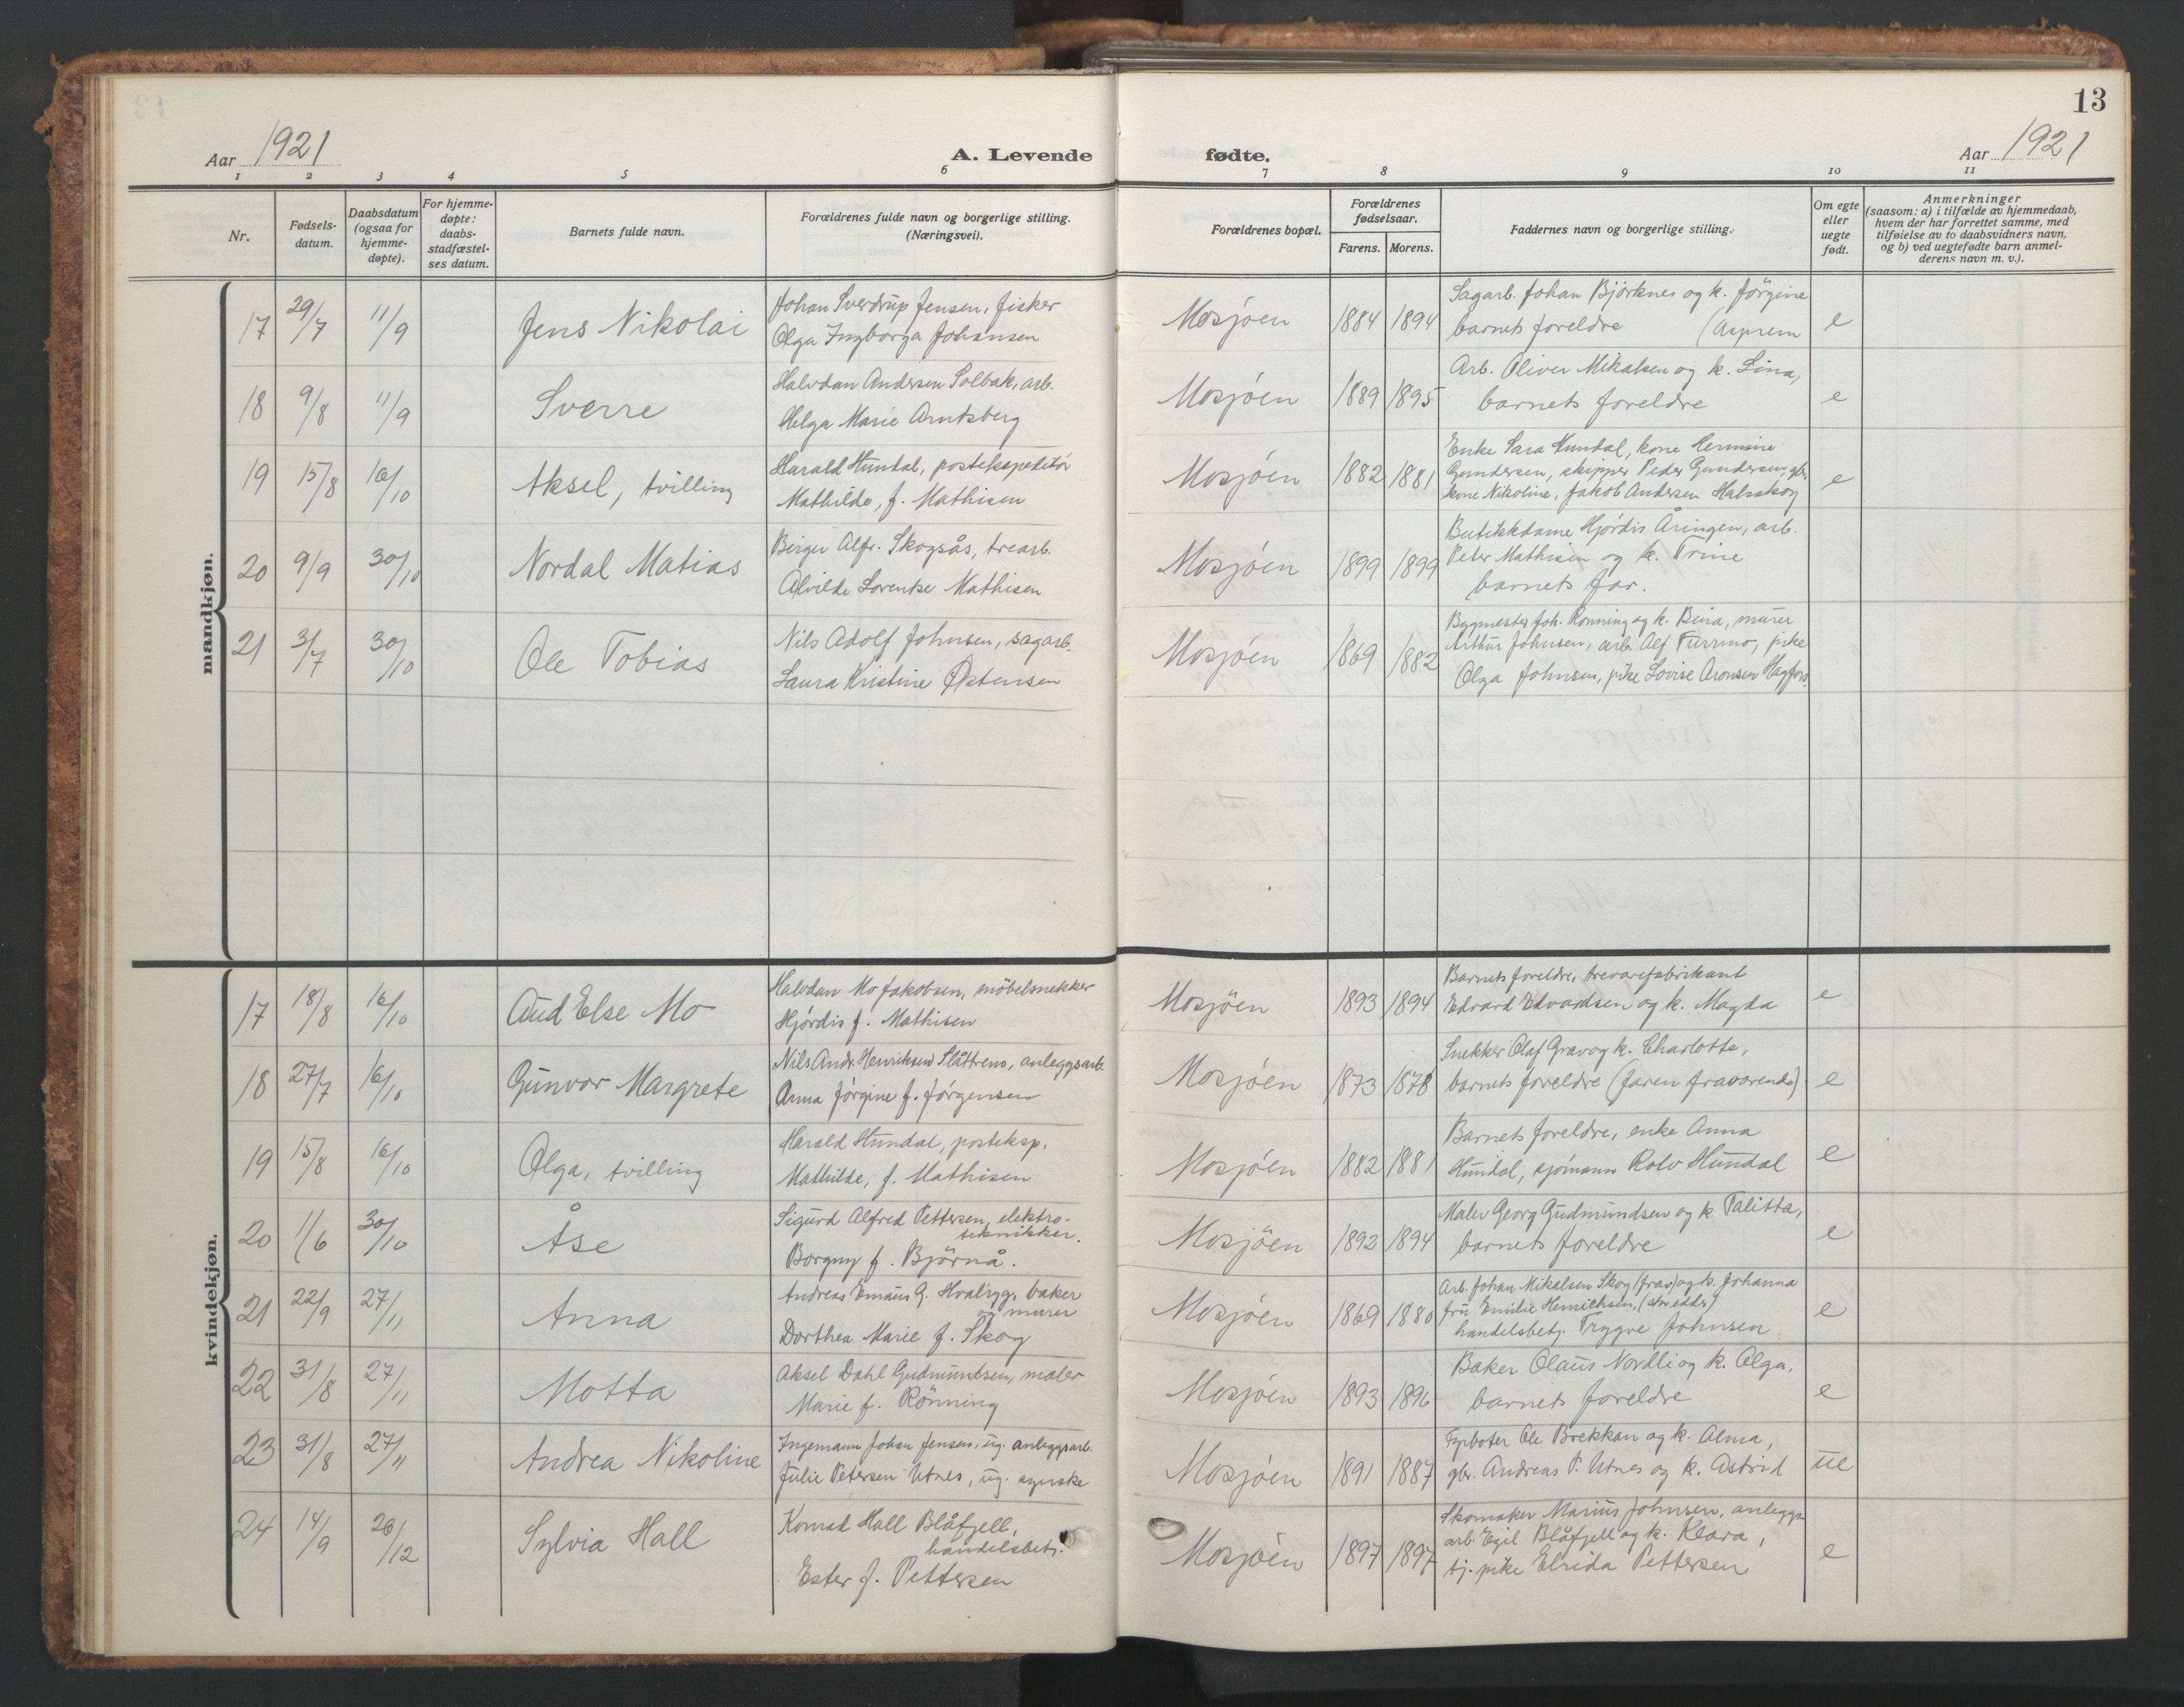 13
Aar 1921
A. Levende fødte.
Aar 1921
1 2 3 4 5 6 7 8 9 10 11
Nr.
Fødsels-
datum.
Daabsdatum
(ogsaa for
hjemme-
døpte).
For hjemme-
døpte:
daabs-
stadfæstel-
ses datum.
Barnets fulde navn.
Forældrenes fulde navn og borgerlige stilling.
(Næringsvei).
Forældrenes bopæl.
Forældrenes
fødselsaar.
Farens. Morens.
Faddernes navn og borgerlige stilling.
Om egte
eller
uegte
født.
Anmerkninger
(saasom: a) i tilfælde av hjemmedaab,
hvem der har forrettet samme, med
tilføielse av to daabsvidners navn,
og b) ved uegtefødte barn anmel-
derens navn m. v.).
mandkjøn.
17 29/7 11/9 Jens Nikolai
Johan Sverdrup Jensen, fisker
Olga Ingborga Johansen
Mosjöen 1884 1894
Sagarb. Johan Björknes og k. Jörgine
barnets foreldre (Asprem
e
18 9/8 11/9 Sverre
Halvdan Andersen Solbak, arb.
Helga Marie Arntsberg
Mosjöen 1889 1895
Arb. Oliver Mikalsen og k. Lina,
barnets foreldre
e
19 15/8 16/10 Aksel, tvilling
Harald Hundal, postekspeditör
Mathilde, f. Mathisen
Mosjöen 1882 1881
Enke Sara Hundal, kone Hermine
Gundersen, skipper Peder Gundersen, gbr.
kone Nikoline, Jakob Andersen Halsskog
e
20 9/9 30/10 Nordal Matias
Birger Alfr. Skogsås, trearb.
Alvilde Lorentse Mathisen
Mosjöen 1899 1899
Butikkdame Hjördis Åringen, arb.
Peter Mathisen og k. Trine
barnets far.
21 3/7 30/10 Ole Tobias
Nils Adolf Johnsen, sagarb.
Laura Kristine Östensen
Mosjöen 1869 1882
Bygmester Joh. Rönning og k. Bina, murer
Arthur Johnsen, arb. Alf Furrmo, pike
Olga Johnsen, pike Lovise Aronsen Hagfors.
kvindekjøn.
17 18/8 16/10 Aud Else Mo
Halvdan Mo Jakobsen, möbelsnekker
Hjördis f. Mathisen
Mosjöen 1893 1894
Barnets foreldre, trevarefabrikant
Edvard Edvardsen og k. Magda
e
18 27/7 16/10 Gunvor Margrete
Nils Andr. Henriksen Slåttrens, anleggsarb.
Anna Jörgine f. Jörgensen
Mosjöen 1873 1878
Snekker Olaf Grav og k. Charlotte,
barnets foreldre (faren fraværende)
e
19 15/8 16/10 Olga, tvilling
Harald Hundal, posteksp.
Mathilde, f. Mathisen
Mosjöen 1882 1881
Barnets foreldre, enke Anna
Hundal, sjömann Rolv Hundal
e
20 1/6 30/10 Åse
Sigurd Alfred Pettersen, elektro-
tekniker.
Borgny f. Björnå.
Mosjöen 1892 1894
Maler Georg Gudmundsen og k Talitta,
barnets foreldre
e
21 22/9 27/11 Anna
Andreas Emaus G. Hvalryg, baker
og murer
Dorthea Marie f. Skog
Mosjöen 1869 1880
Arb. Johan Mikalsen Skog (frav) og k. Johanna
fru Emilie Henrichsen,
handelsbetj. Trygve Johnsen
e
22 31/8 27/11 Motta
Aksel Dahl Gudmundsen, maler
Marie f. Rönning
Mosjöen 1893 1896
Baker Olaus Nordli og k. Olga.
barnets foreldre
e
23 31/8 27/11 Andrea Nikoline
Ingemann Johan Jensen, ug. anleggsarb.
Julie Petersen Utnes, ug. syerske
Mosjöen 1891 1887
Fyrböter Ole Brekkan og k. Alma,
gbr. Andreas P. Utnes og k. Astrid
ue
24 14/9 26/12 Sylvia Hall
Konrad Hall Blåfjell,
handelsbetj.
Ester f. Pettersen
Mosjöen 1897 1897
Skomaker Marius Johnsen, anleggs-
arb. Egil Blåfjell og k. Klara,
tj.pike Elrida Pettersen
e